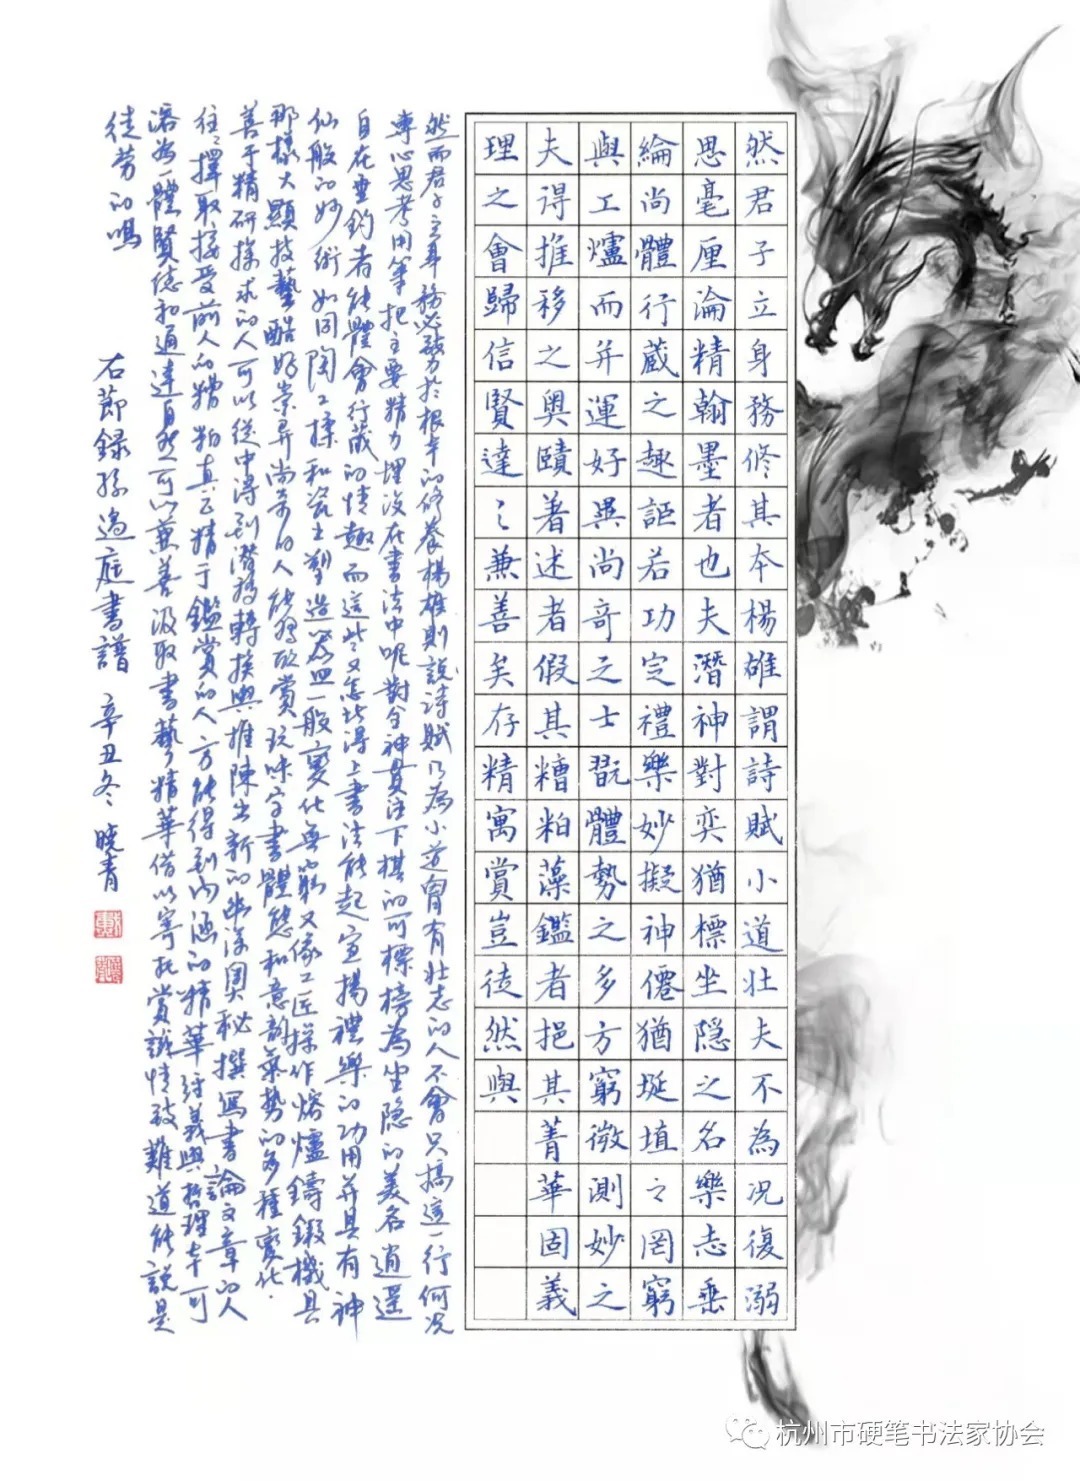 然君子立身務修其本楊雄謂詩賦小道壯夫不為况復溺
思毫厘淪精翰墨者也夫潛神對奕猶標坐隱之名樂志垂
綸尚體行藏之趣詎若功定禮樂妙擬神僊猶埏埴之罔窮
與工爐而并運好異尚奇之士翫體勢之多方窮微測妙之
夫得推移之奧賾著述者假其糟粕藻鑑者挹其菁華固義
理之會歸信賢達〻兼善矣存精寓賞豈徒然與
然而君子立身務必致力於根本的修養楊雄則說詩賦乃為小道胸有壯志的人不會只搞這一行何况
專心思考用筆把主要精力埋没在書法中呢對全神貫注下棋的可標榜為坐隱的美名逍遥
自在垂釣者能體會行藏的情趣而這些又怎比得上書法能起宣揚禮樂的功用并具有神
仙般的妙術如同陶工揉和瓷土塑造器皿一般變化無窮又像工匠操作熔爐鑄鍛機具
那樣大顯技藝酷好崇异尚奇的人能夠欣賞玩味字書體態和意韵氣勢的多種變化.
善于精研探求的人可以從中得到潛移轉換與推陳出新的幽深奧秘撰寫書論文章的人
往〻擇取接受前人的糟粕真正精于鑑賞的人方能得到内涵的精華經義與哲理本可
溶為一體賢德和通達自然可以兼善汲取書藝精華借以寄托賞識情致難道能說是
徒勞的嗎
右節録孫過庭書譜 辛丑冬 曉青
杭州市硬笔书法家协会